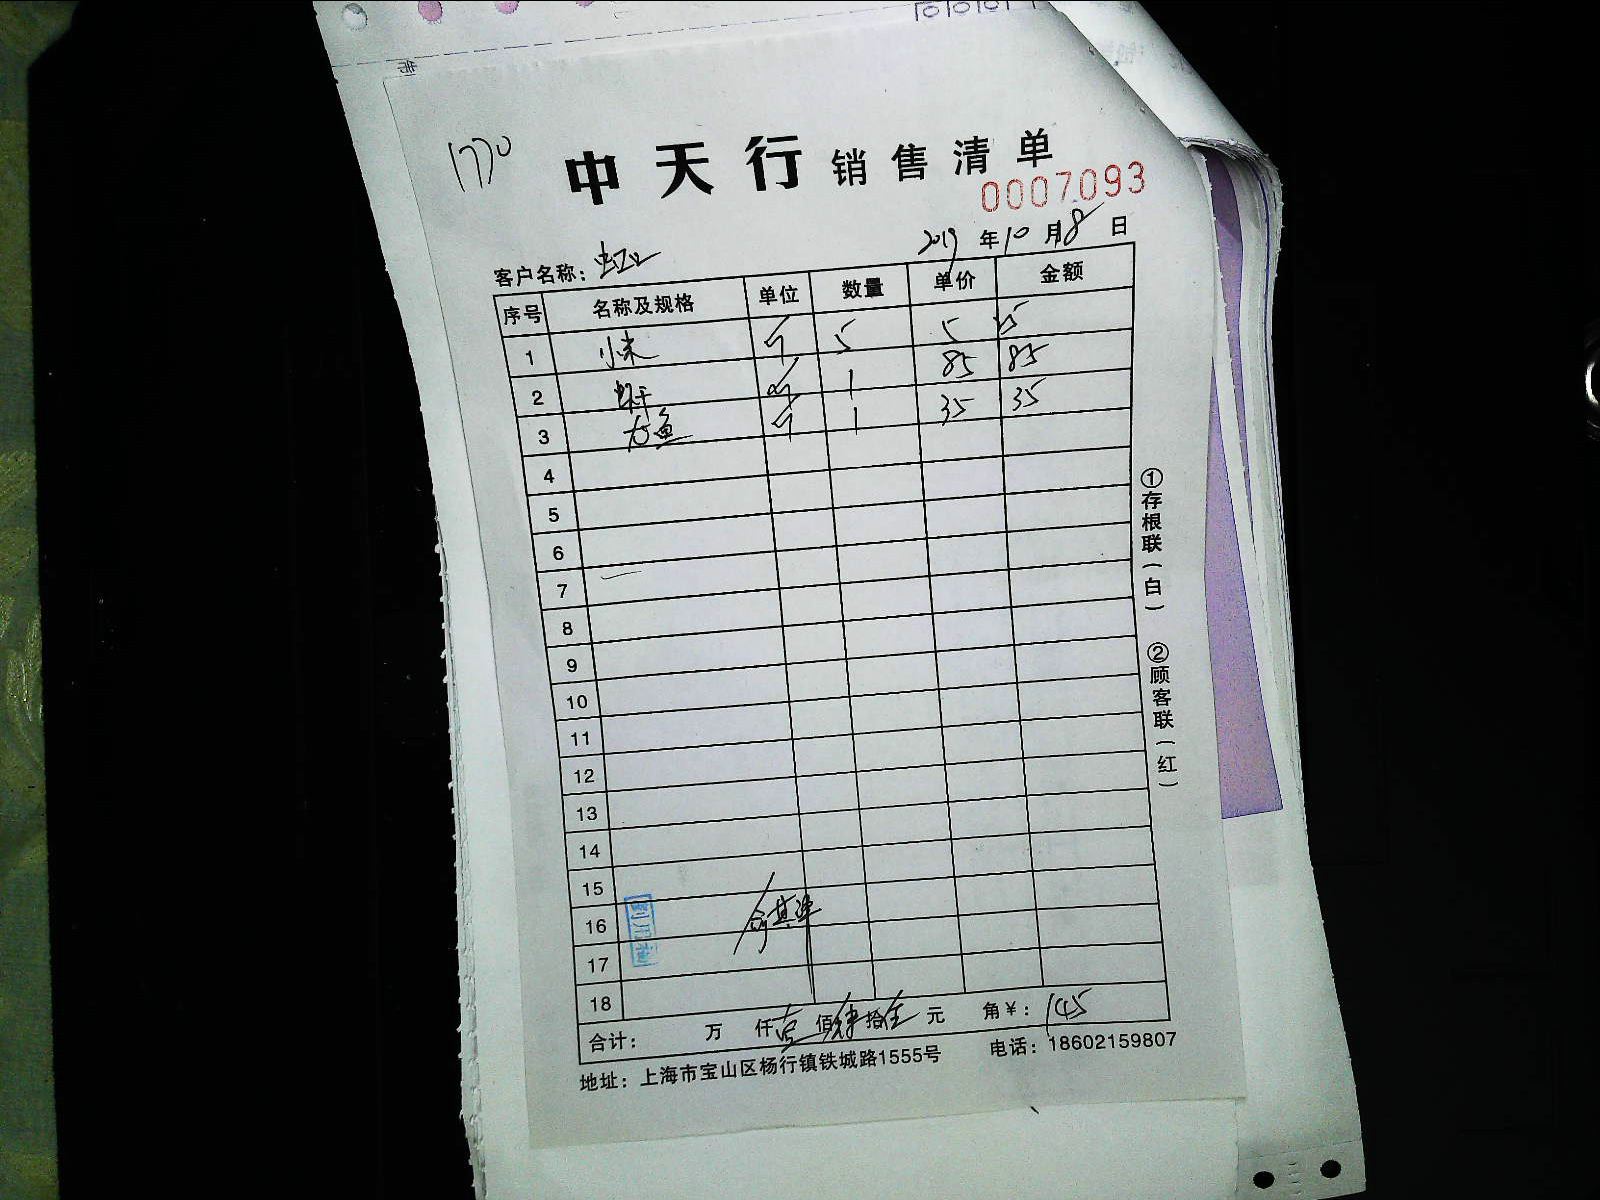 1770
中天行 销售清单
0007093
2019 年 10 月 8 日
客户名称： 虹江
序号 名称及规格 单位 数量 单价 金额
1 小米 斤 5 5 25
2 虾干 斤 1 85 85
3 鱼 斤 1 35 35
4
5
6
7
8
9
10
11
12
13
14
15
16
17
18
合计： 万 仟 壹 佰 肆 拾 伍 元 角 ￥： 145
地址：上海市宝山区杨行镇铁城路1555号 电话：18602159807
①存根联（白） ②顾客联（红）